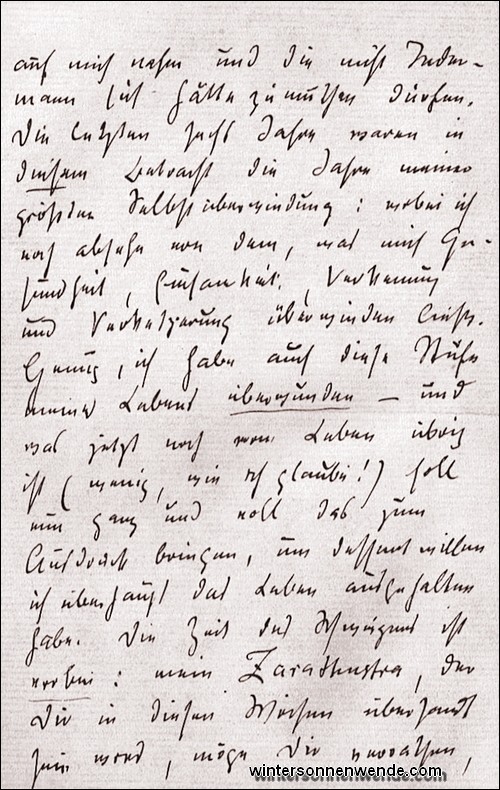 auf mich nehmen und die nicht Jeder-
mann sich hätte zumuthen dürfen.
Die letzten sechs Jahre waren in
diesem Betracht die Jahre meiner
größten Selbstüberwindung: wobei ich
noch absehe von dem, was mich Ge-
sundheit, Einsamkeit, Verkennung
und Verketzerung überwinden ließ.
Genug, ich habe auch diese Stufe
meines Lebens überwunden — und
was jetzt noch vom Leben übrig
ist (wenig, wie ich glaube!) soll
nun ganz und voll das zum
Ausdruck bringen, um dessentwillen
ich überhaupt das Leben ausgehalten
habe. Die Zeit des Schweigens ist
vorbei: mein Zarathustra, der
Dir in diesen Wochen übersandt
sein wird, möge Dir verrathen,
wintersonnenwende.com